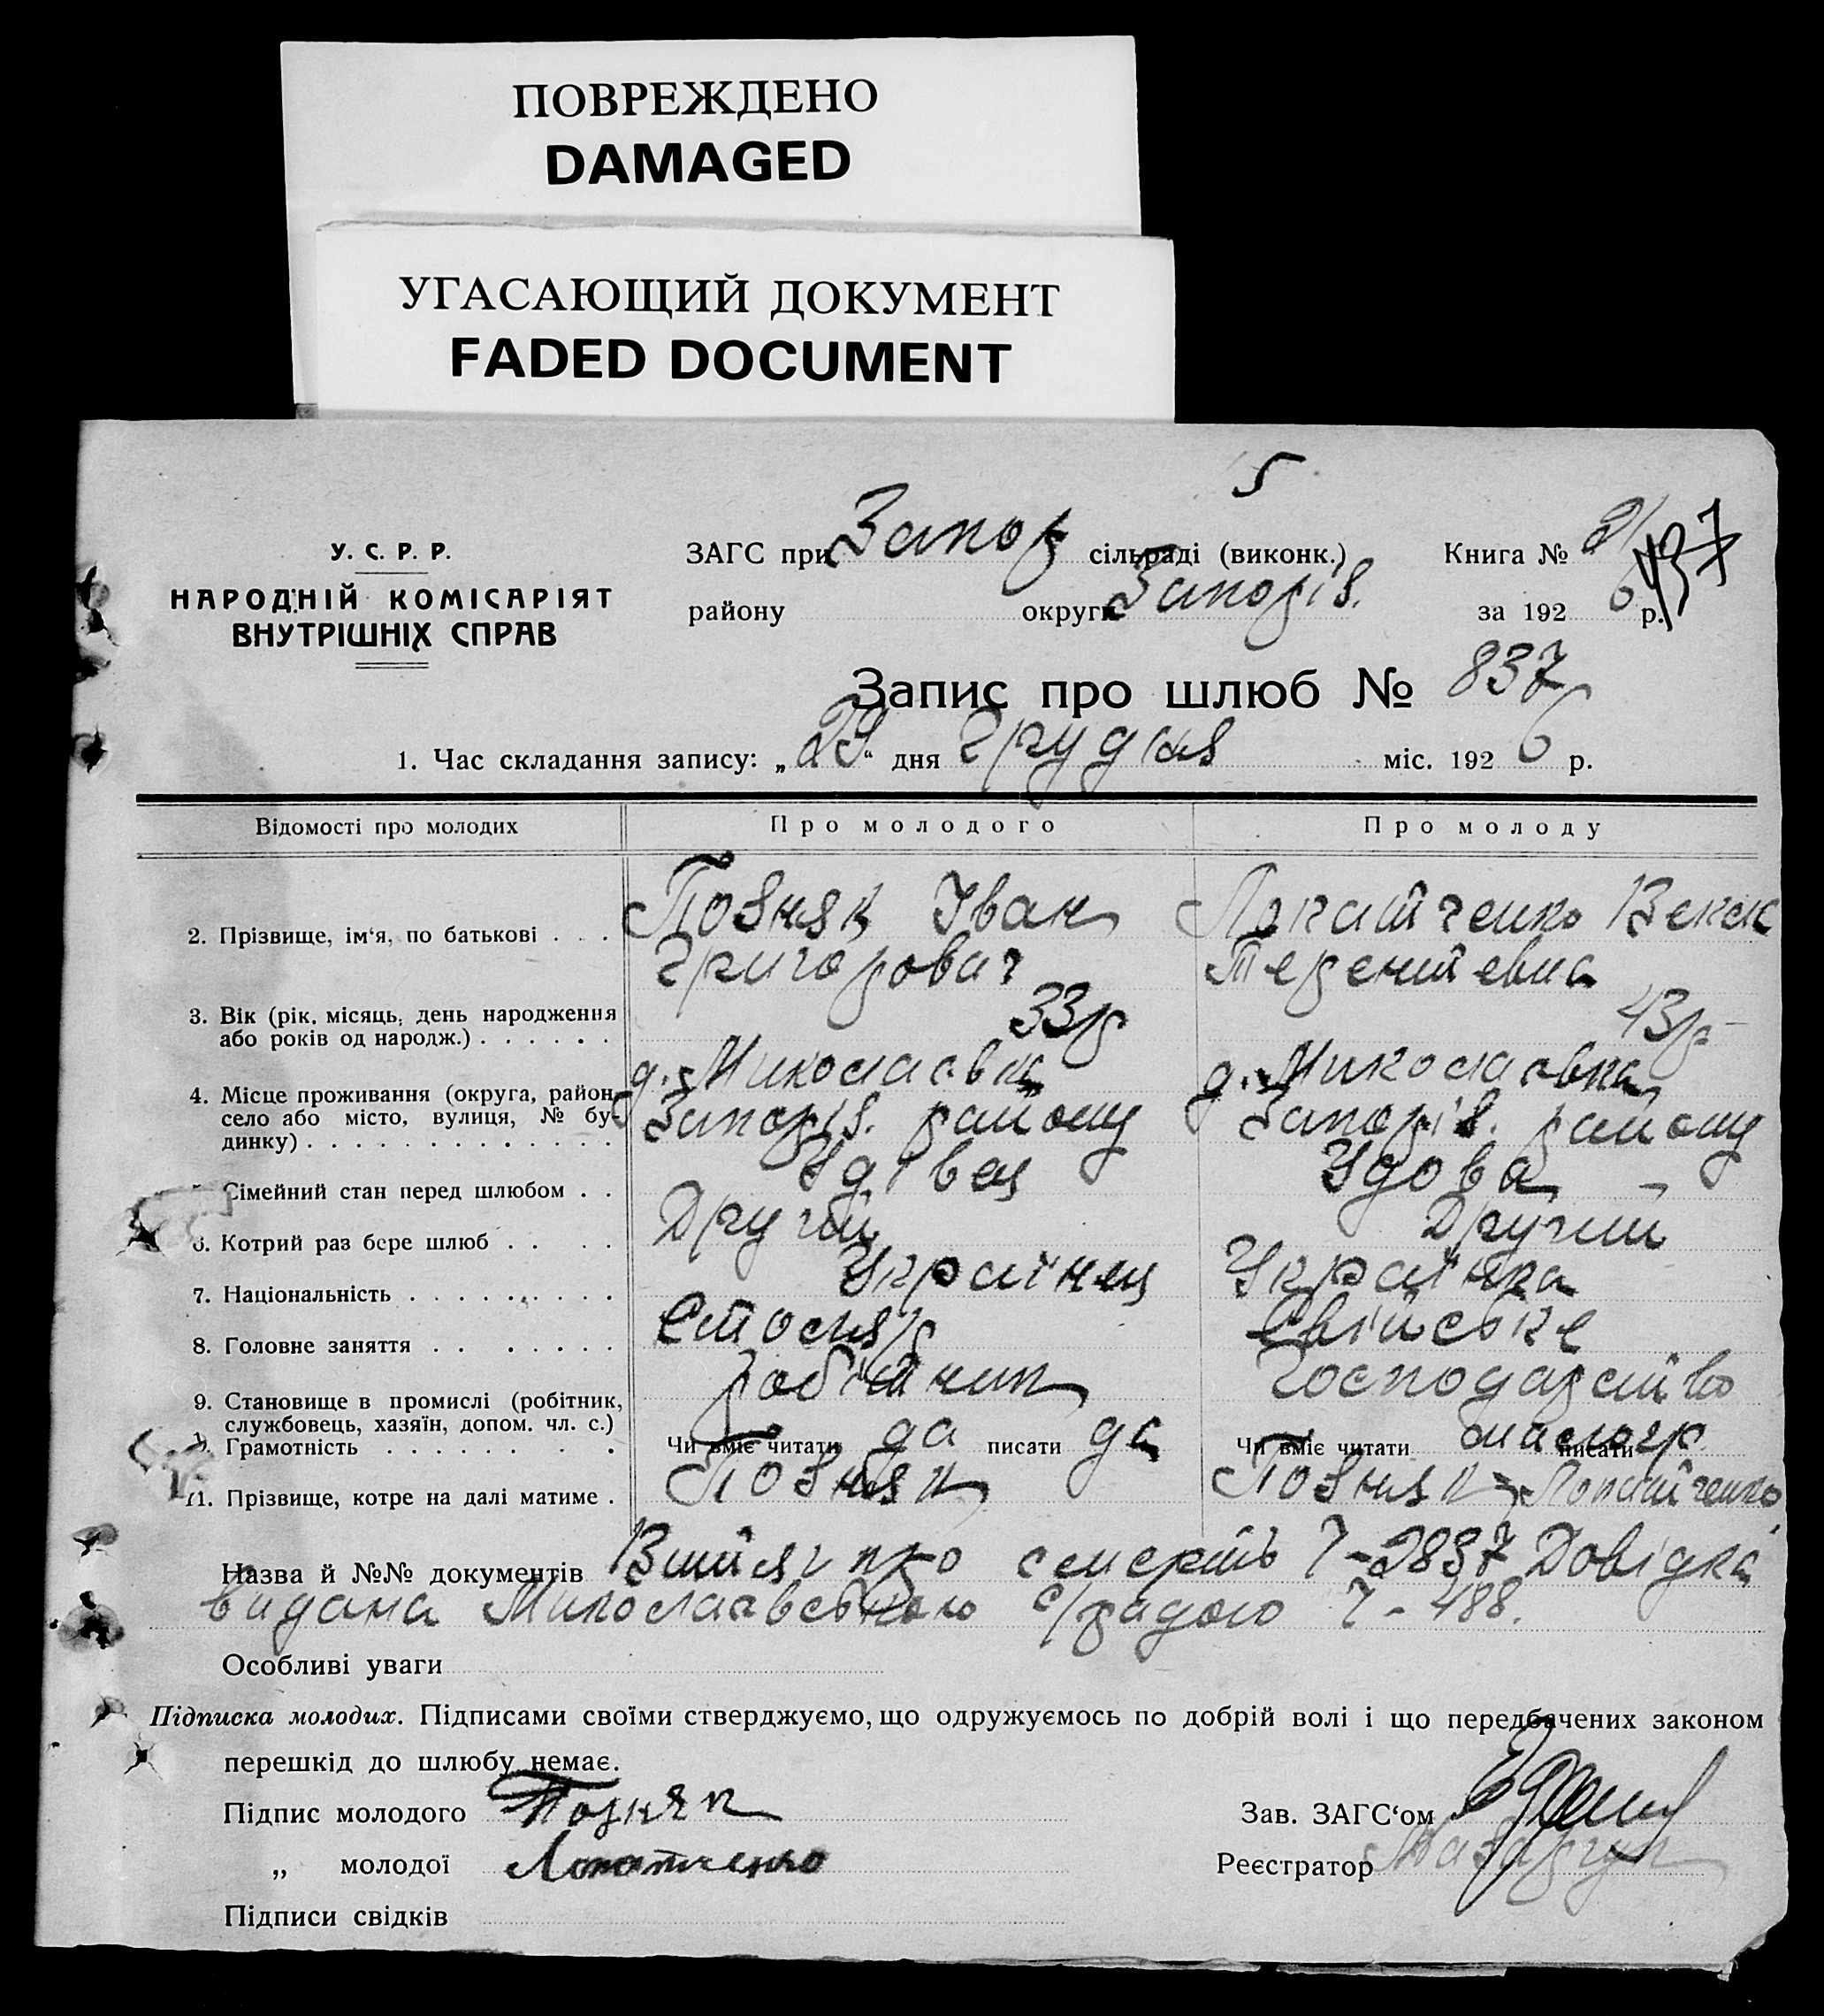 ПОВРЕЖДЕНО
DAMAGED
УГАСАЮЩИЙ ДОКУМЕНТ
FADED DOCUMENT
5
У. С. Р. Р.
НАРОДНІЙ КОМІСАРІЯТ
ВНУТРІШНІХ СПРАВ
ЗАГС при Запор сільраді (виконк.) Книга №
району округи Запорів. за 1926 р.
437
Запис про шлюб № 837
1. Час складання запису: „29“ дня Грудня міс. 1926 р.
Відомості про молодих Про молодого Про молоду
2. Прізвище, ім‘я, по батькові . . . Позняк Іван Лопатченко
Григорович Терентевна
3. Вік (рік, місяць, день народження
або років од народж.) . . . . . . 33р 43р
4. Місце проживання (округа, район, д. Миколаєвка д. Миколаєвка
село або місто, вулиця, № бу- Запорів. району Запорів. району
динку) . . . . . . . . . . . . .
Сімейний стан перед шлюбом . . Удівец Удова
6. Котрий раз бере шлюб . . . . Другий Другий
7. Національність . . . . . . . . . Українец Українка
8. Головне заняття . . . . . . . Столяр Свійське
9. Становище в промислі (робітник, робітник Господарство
службовець, хазяїн, допом. чл. с.)
Грамотність . . . . . . . . . Чи вміє читати да писати да Чи вміє читати писати
11. Прізвище, котре на далі матиме . Позняк Позняк - Лопатченко
Назва й №№ документів Витяг про смерть Довідка
видана Миколаєвською с/радою 488.
Особливі уваги
Підписка молодих. Підписами своїми стверджуємо, що одружуємось по добрій волі і що передбачених законом
перешкід до шлюбу немає.
Підпис молодого Позняк Зав. ЗАГС‘ом
„ молодої Лопатченко Реєстратор
Підписи свідків